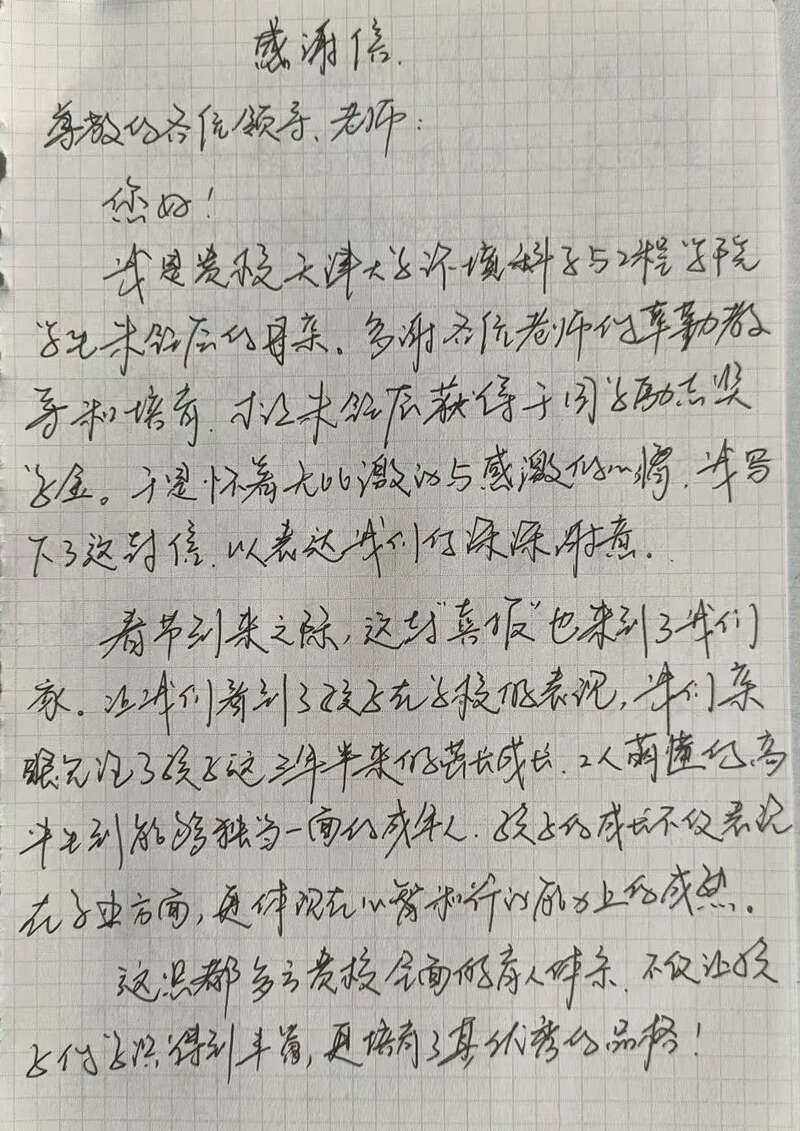 感谢信
尊敬的各位领导、老师:
您好!
我是贵校天津大学环境科学与工程学院
学生朱钰辰的母亲。多谢各位老师的辛勤教
导和培育,才让朱钰辰获得了国家励志奖
学金。于是怀着无比激动与感激的心情,我写
下了这封信,以表达我们的深深谢意。
春节到来之际,这封"喜报"也来到了我们
家。让我们看到了孩子在学校的表现,我们亲
眼见证了孩子这三年半来的茁长成长,从懵懂的高
中生到能够独当一面的成年人,孩子的成长不仅表现
在学业方面,更体现在心智和行动能力上的成熟。
这些都多亏贵校全面的育人体系,不仅让孩
子的学识得到丰富,更培育了其优秀的品格!